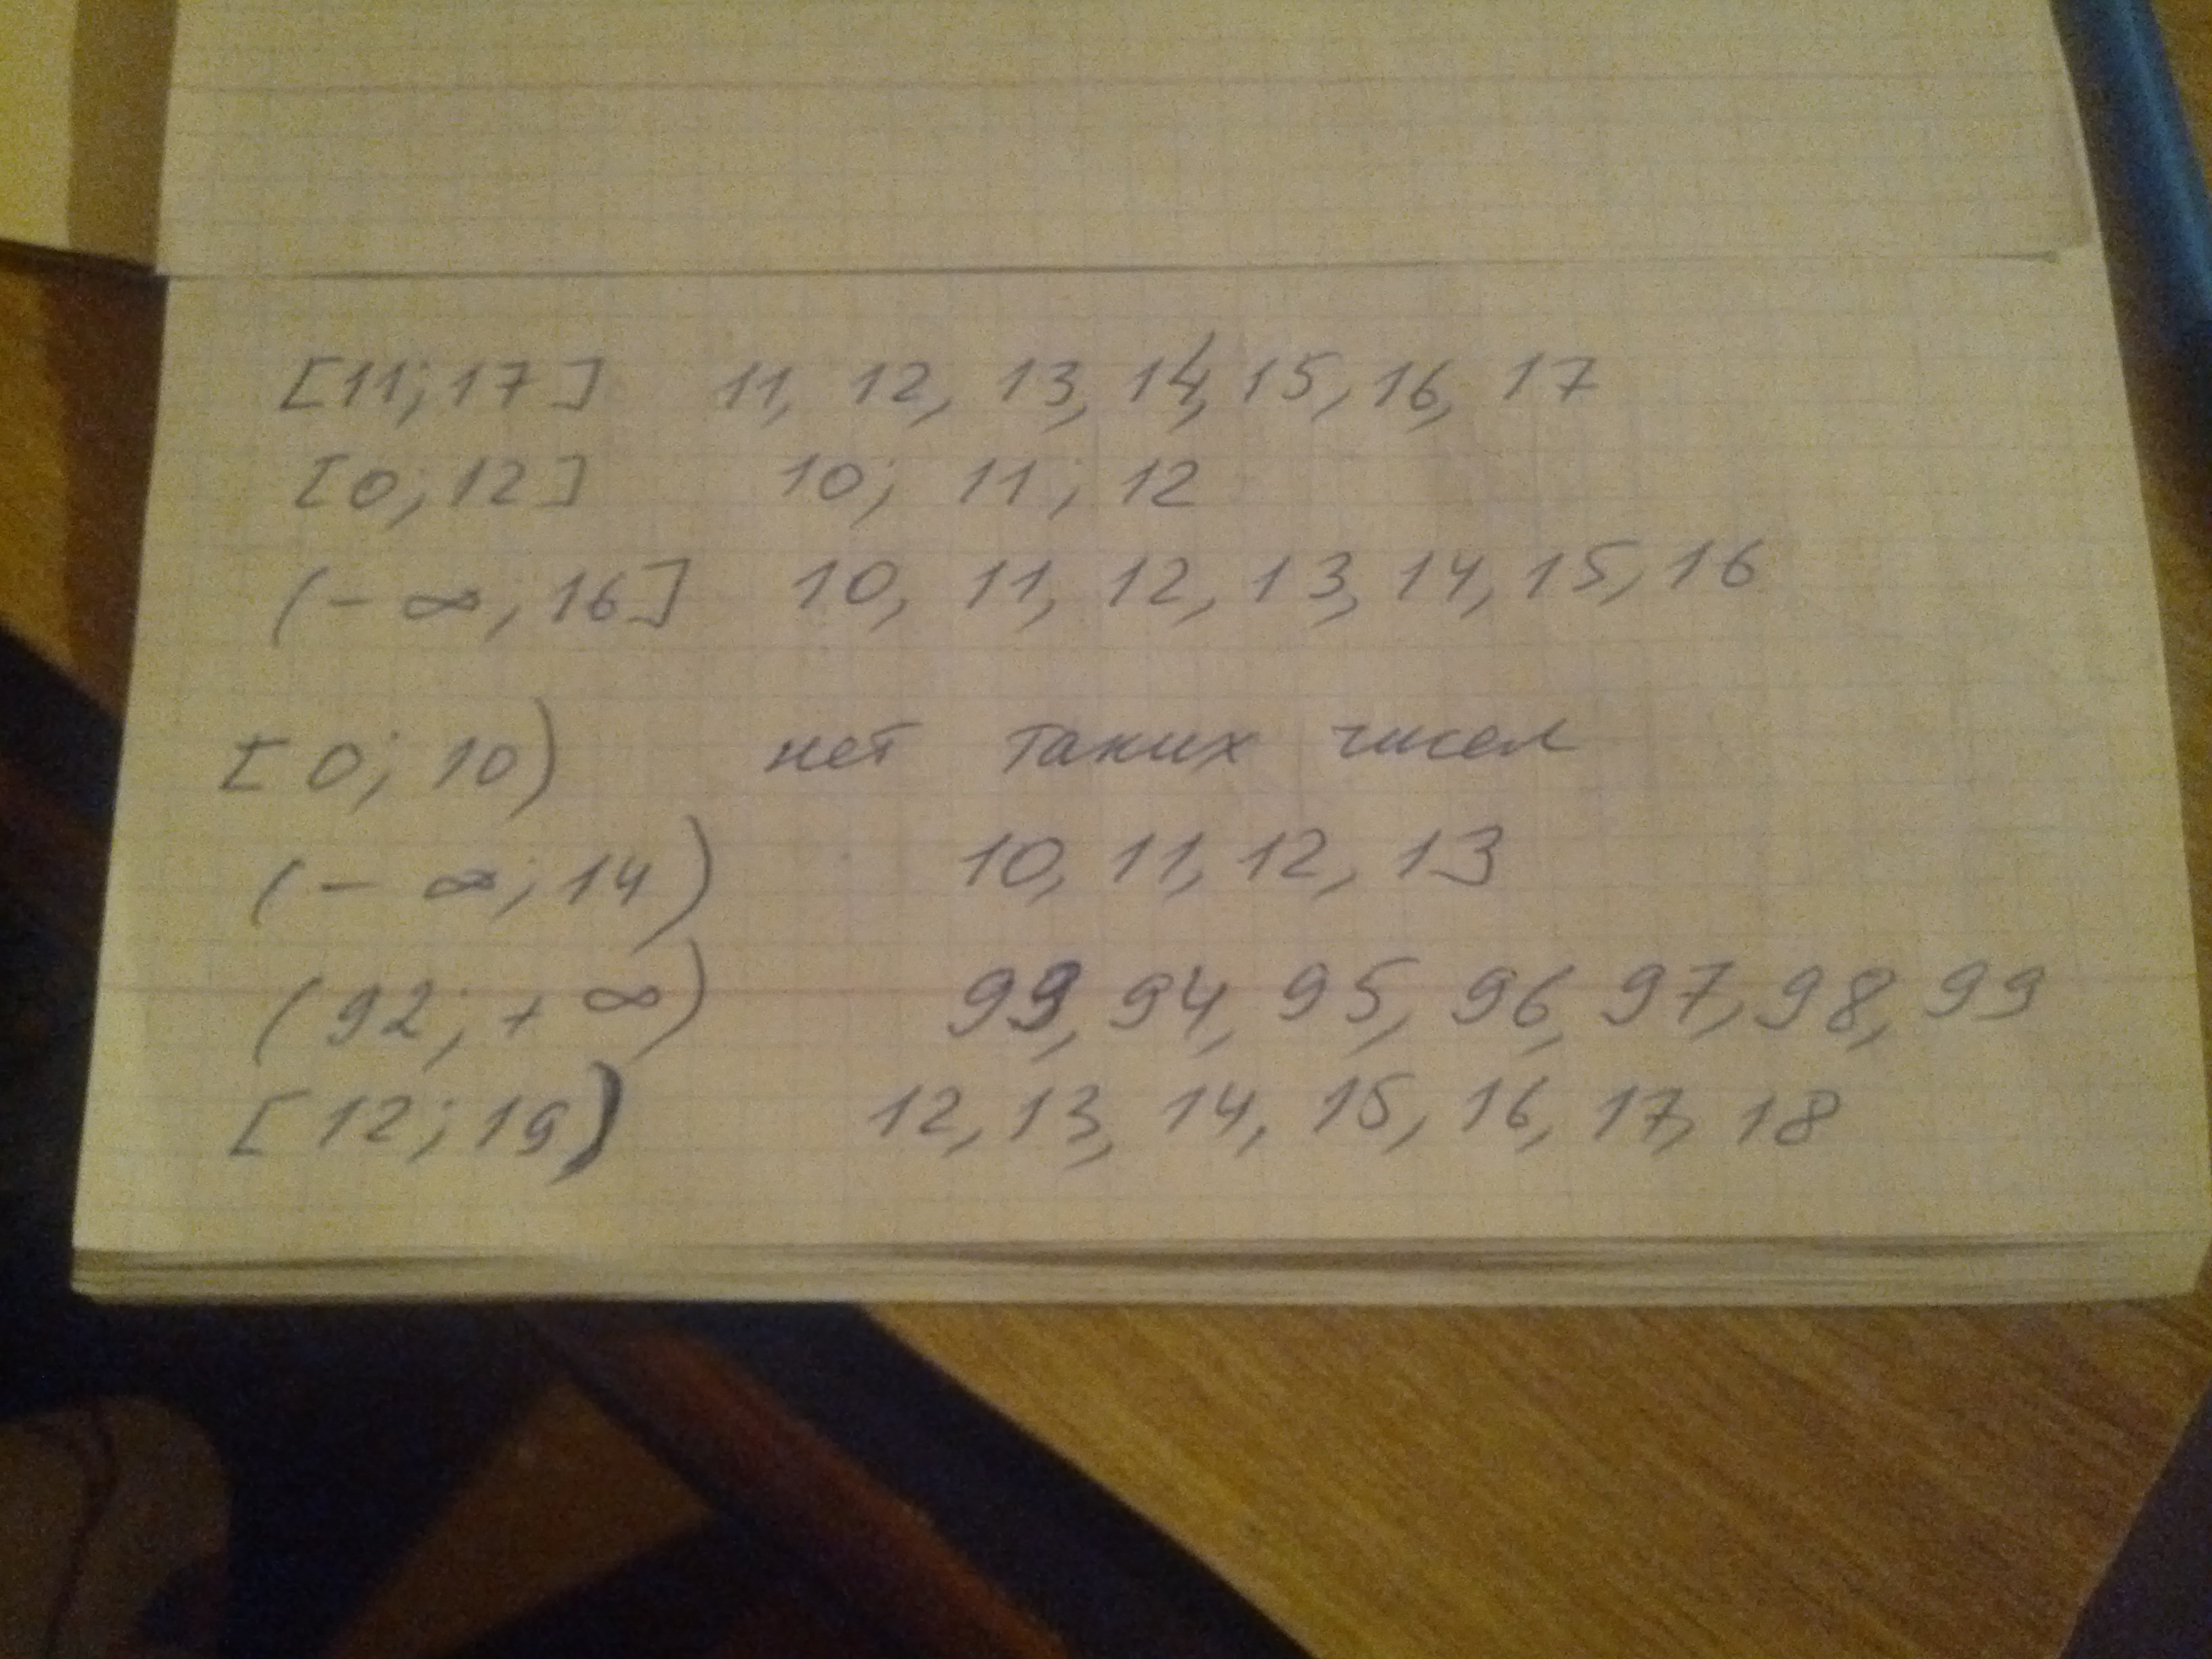 [11; 17] 11, 12, 13, 14, 15, 16, 17
[0; 12] 10; 11; 12
(- ∞, 16] 10, 11, 12, 13, 14, 15, 16
[0; 10) нет таких чисел
(- ∞; 14) 10, 11, 12, 13
(92; + ∞) 93, 94, 95, 96, 97, 98, 99
[12; 19) 12, 13, 14, 15, 16, 17, 18